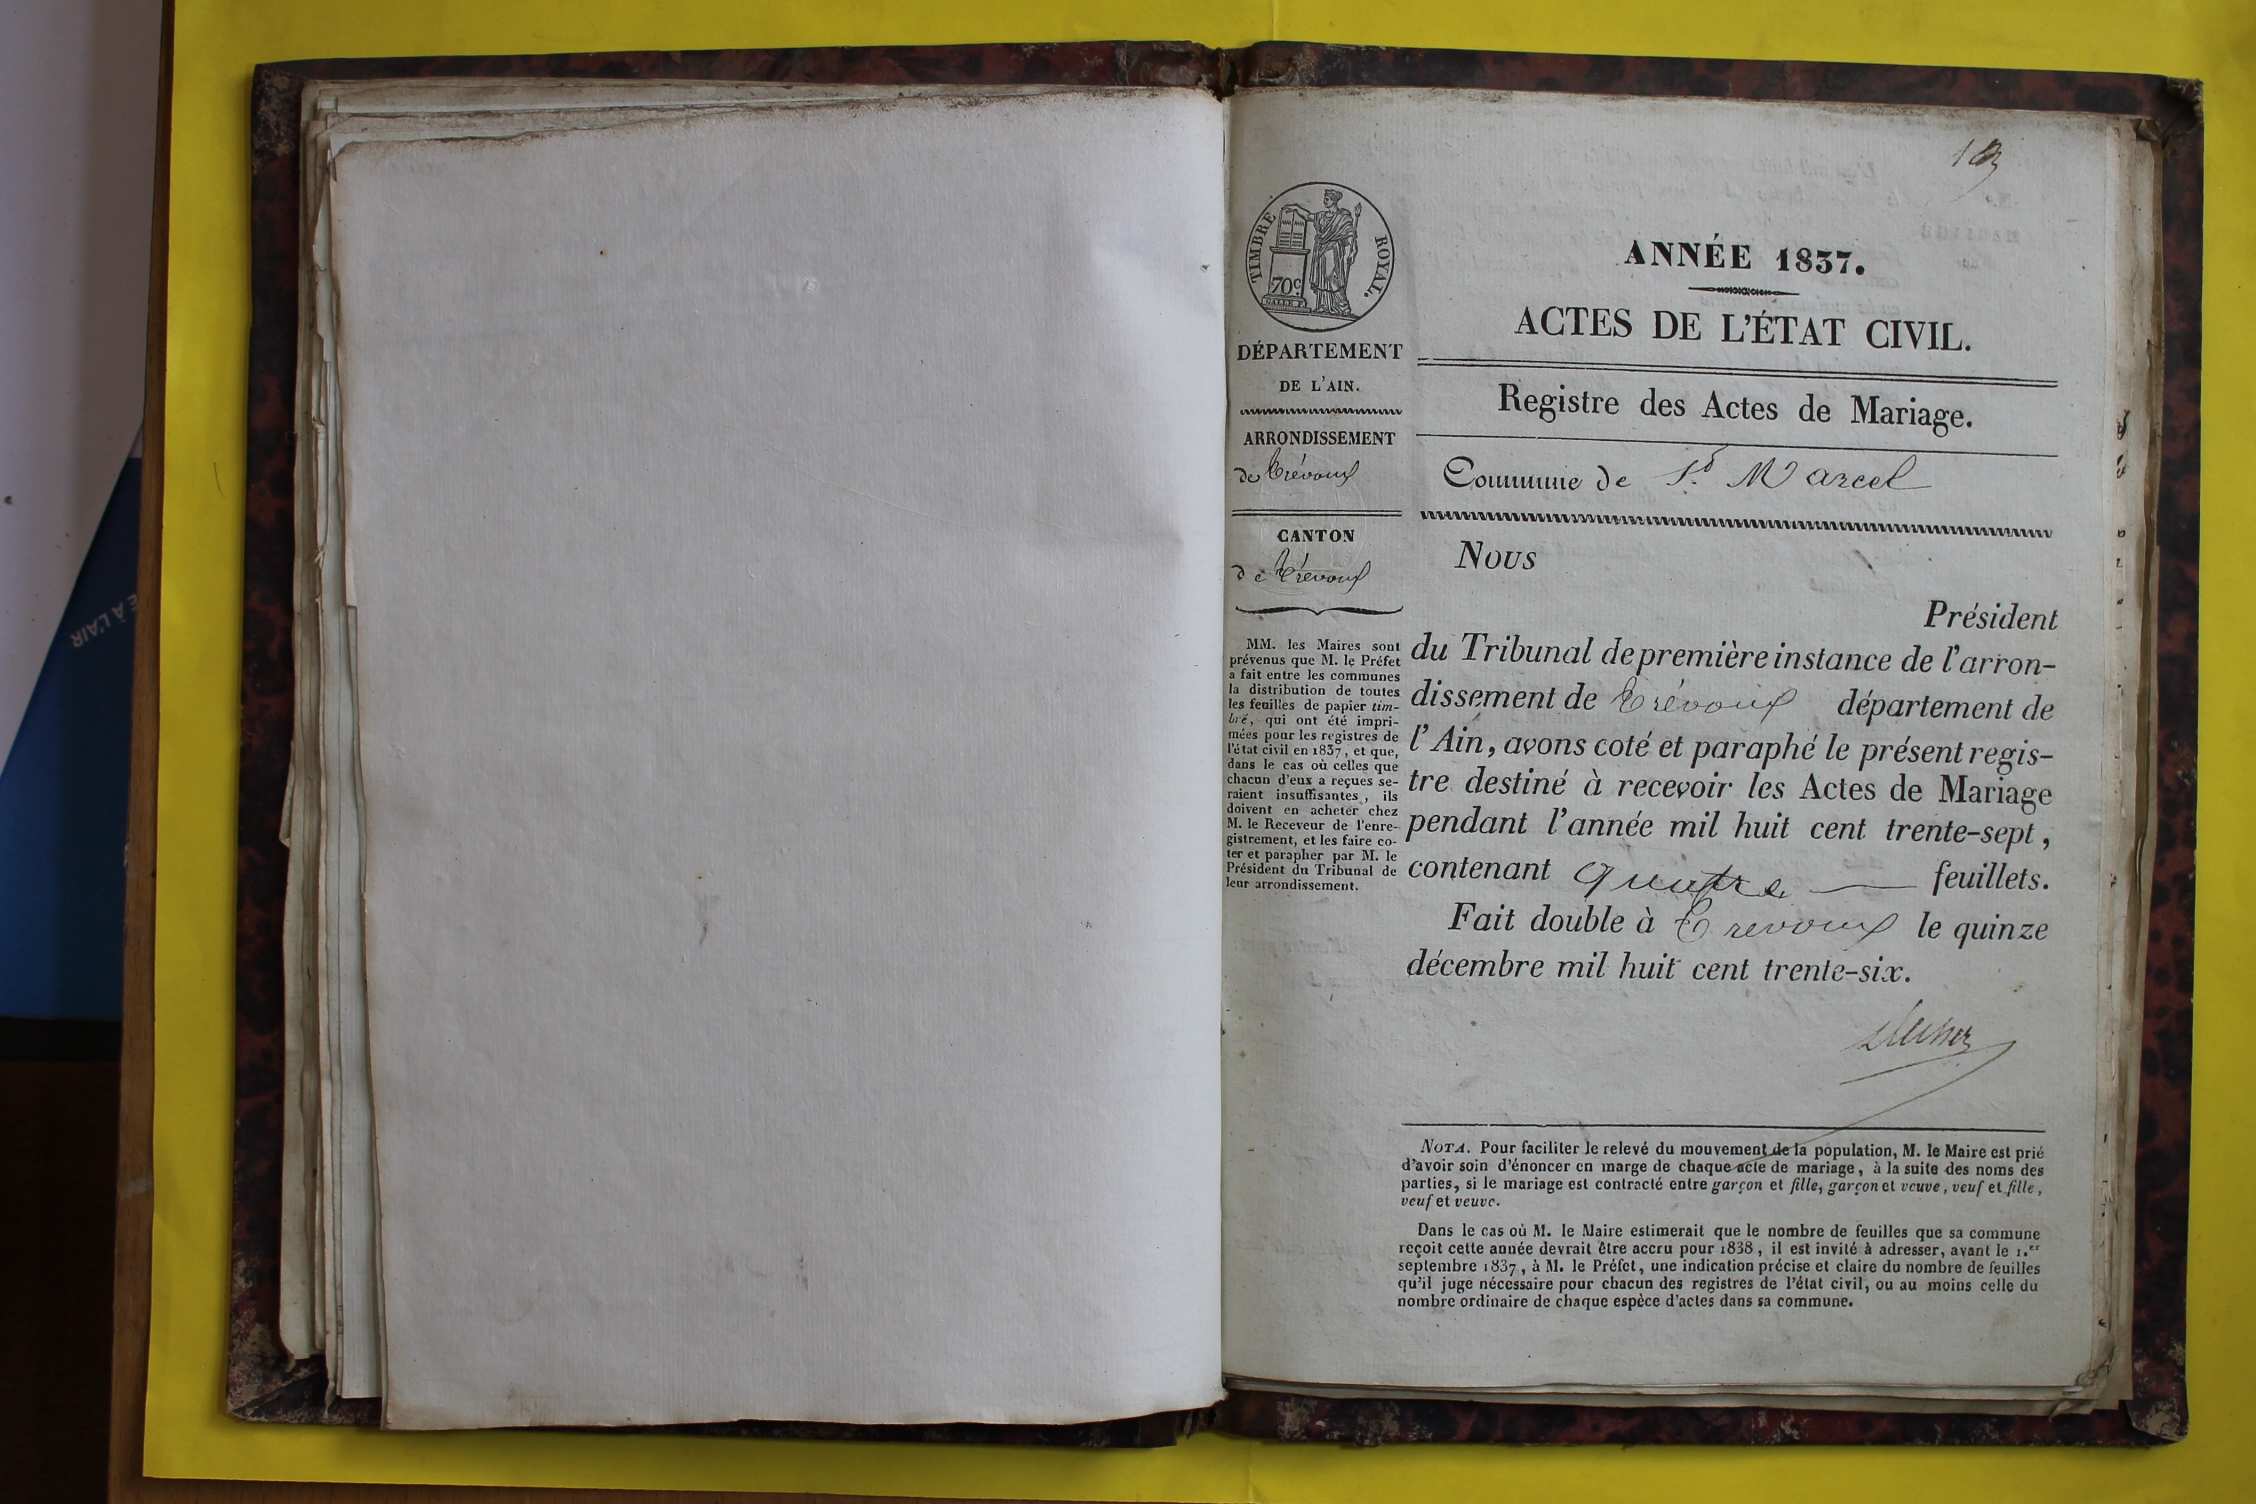 ANNÉE 1837.
ACTES DE L'ÉTAT CIVIL.
Registre des Actes de Mariage.
Commune de St. Marcel
TIMBRE ROYAL.
70c.
DÉPARTEMENT
DE L'AIN.
ARRONDISSEMENT
de Trévoux
CANTON
de Trévoux
MM. les Maires sont
prévenus que M. le Préfet
a fait entre les communes
la distribution de toutes
les feuilles de papier tim-
bré, qui ont été impri-
mées pour les registres de
l'état civil en 1837, et que,
dans le cas où celles que
chacun d'eux a reçues se-
raient insuffisantes, ils
doivent en acheter chez
M. le Receveur de l'enre-
gistrement, et les faire co-
ter et parapher par M. le
Président du Tribunal de
leur arrondissement.
Nous
Président
du Tribunal de première instance de l'arron-
dissement de Trévoux département de
l'Ain, avons coté et paraphé le présent regis-
tre destiné à recevoir les Actes de Mariage
pendant l'année mil huit cent trente-sept,
contenant quatre feuillets.
Fait double à Trevoux le quinze
décembre mil huit cent trente-six.
NOTA. Pour faciliter le relevé du mouvement de la population, M. le Maire est prié
d'avoir soin d'énoncer en marge de chaque acte de mariage, à la suite des noms des
parties, si le mariage est contracté entre garçon et fille, garçon et veuve, veuf et fille,
veuf et veuve.
Dans le cas où M. le Maire estimerait que le nombre de feuilles que sa commune
reçoit cette année devrait être accru pour 1838, il est invité à adresser, avant le 1.er
septembre 1837, à M. le Préfet, une indication précise et claire du nombre de feuilles
qu'il juge nécessaire pour chacun des registres de l'état civil, ou au moins celle du
nombre ordinaire de chaque espèce d'actes dans sa commune.
E À L'AIR